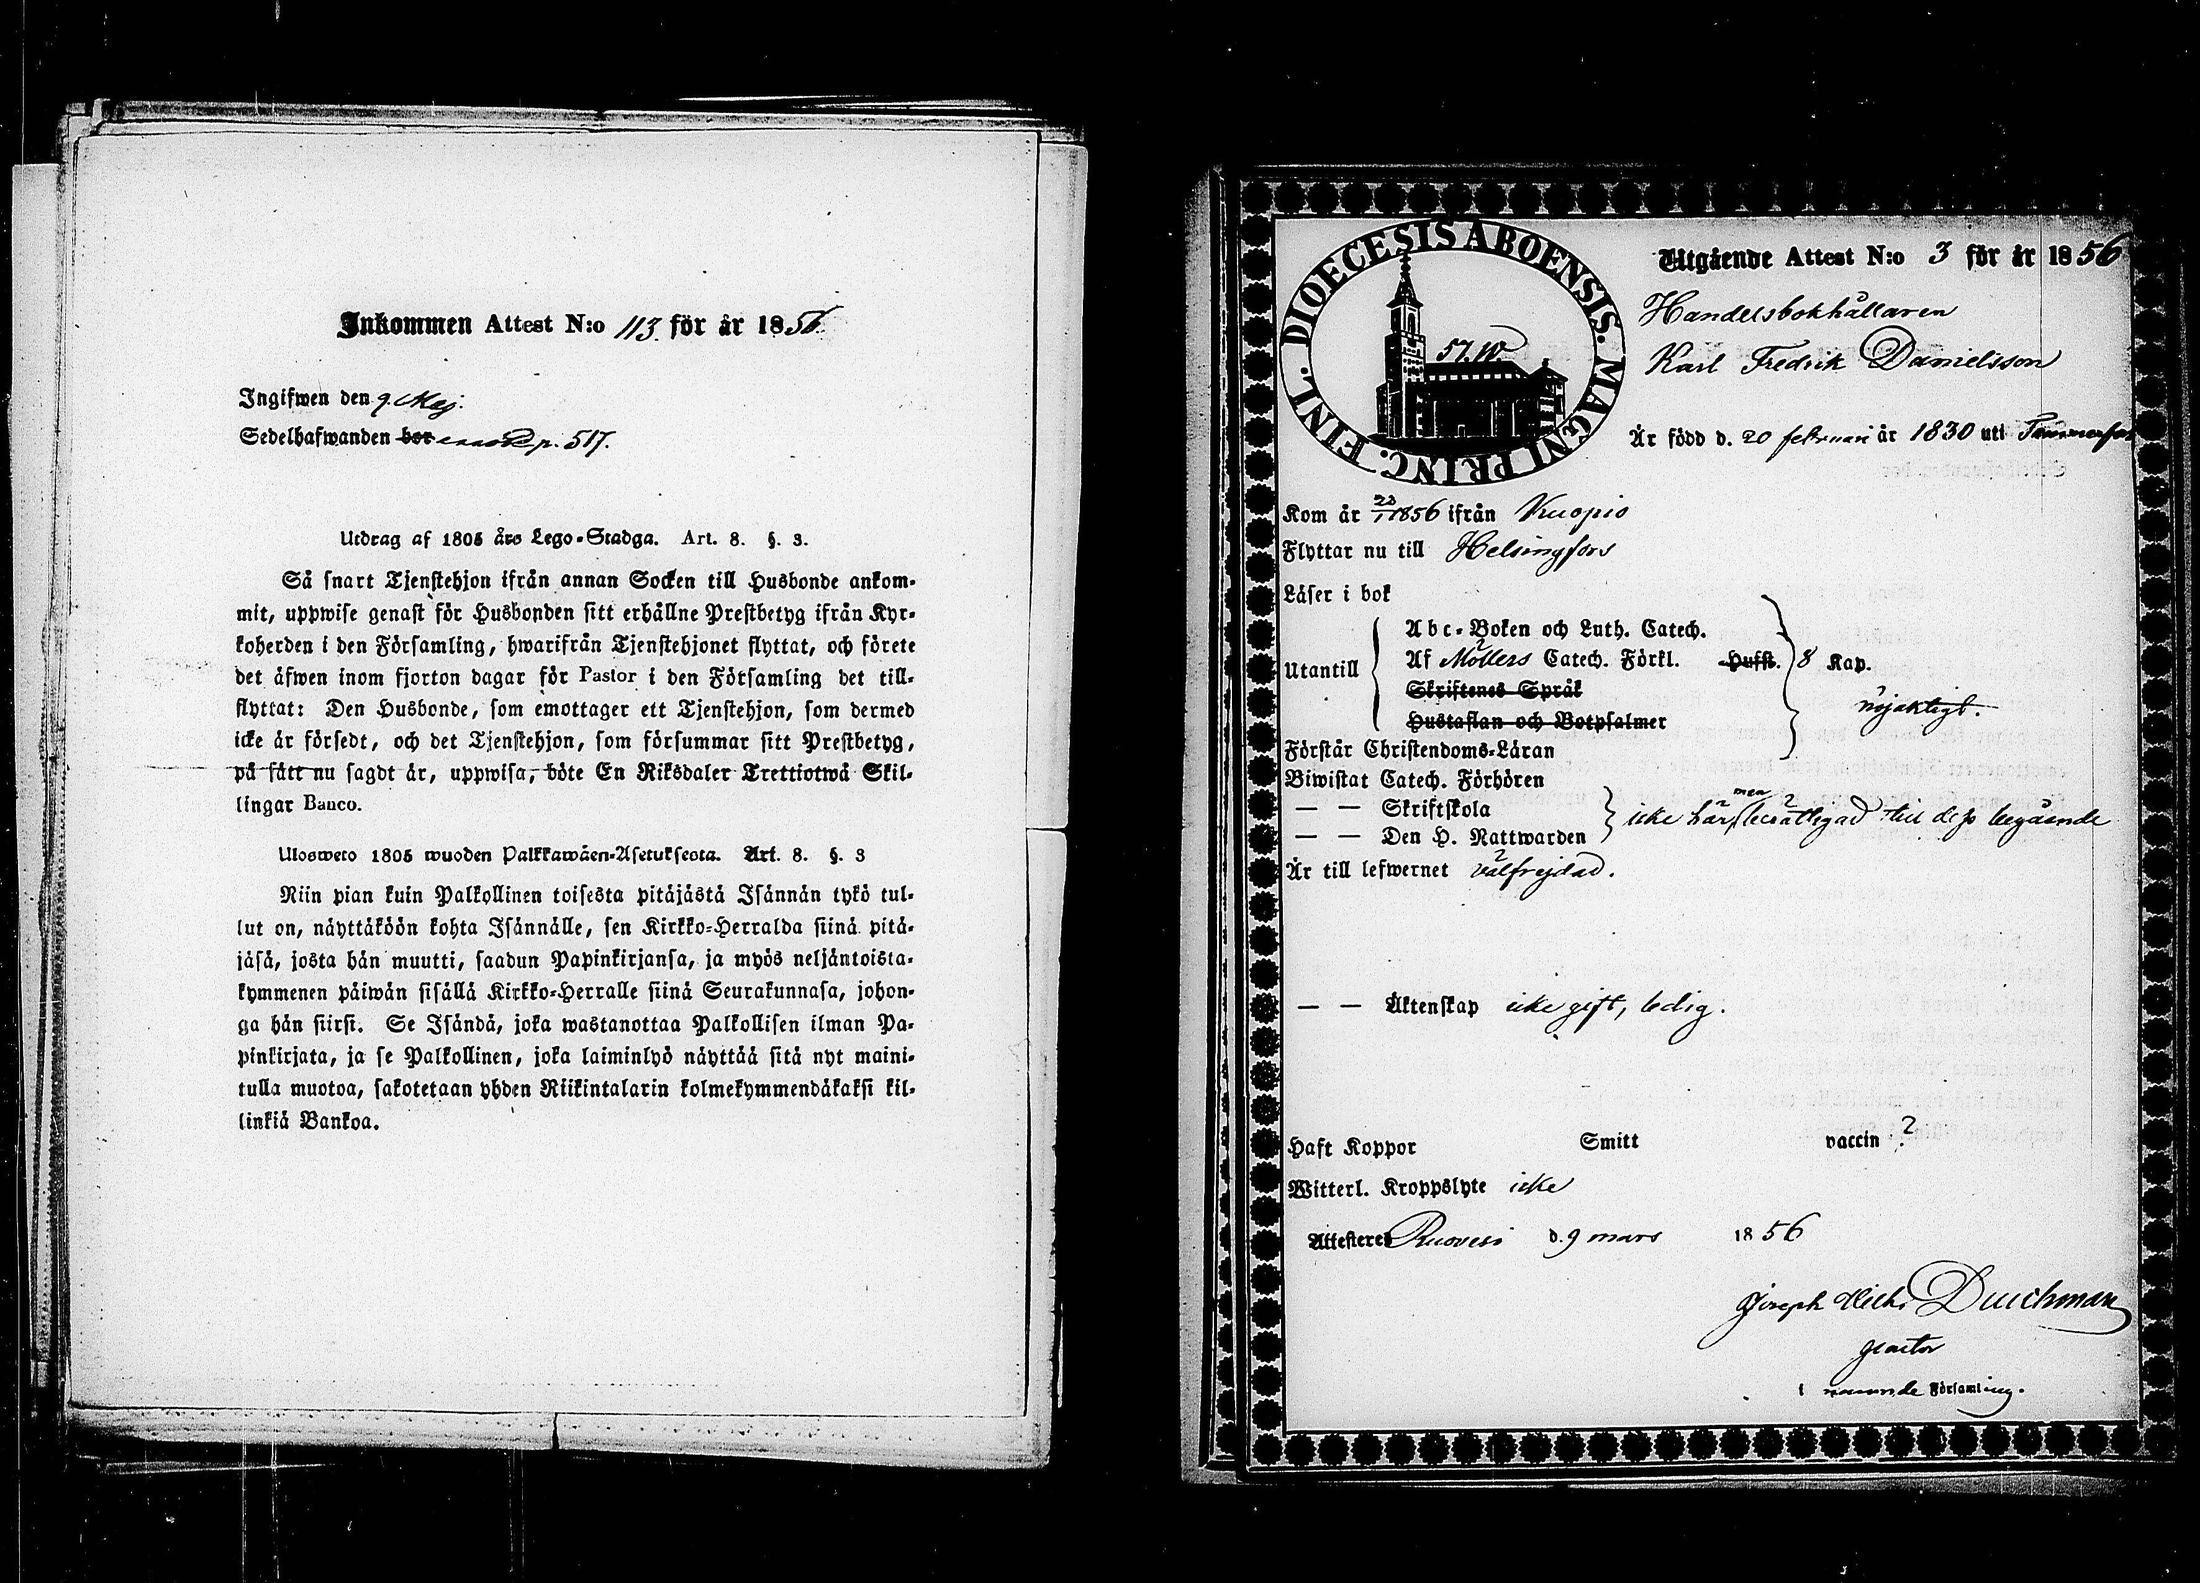 Inkommen Attest N:o 113 för år 1856
Ingifwen den 9. Maj.
Sedelhafwanden bor p. 517.
Utdrag af 1805 års Lego-Stadga. Art. 8. §. 3.
Så snart Tjenstehjon ifrån annan Socken till Husbonde ankom-
mit, uppwise genast för Husbonden sitt erhållne Prestbetyg ifrån Kyr-
koherden i den Församling, hwarifrån Tjenstehjonet flyttat, och förete
det äfwen inom fjorton dagar för Pastor i den Församling det till-
flyttat: Den Husbonde, som emottager ett Tjenstehjon, som dermed
icke är försedt, och det Tjenstehjon, som försummar sitt Prestbetyg,
på sätt nu sagdt är, uppwisa, böte En Riksdaler Trettiotwå Skil-
lingar Banco.
Ulosweto 1805 wuoden Palkkawäen-Asetuksesta. Art. 8. §. 3
Niin pian kuin Palkollinen toisesta pitäjästä Isännän tykö tul-
lut on, näyttäköön kohta Isännälle, sen Kirkko-Herralda siinä pitä-
jäsä, josta hän muutti, saadun Papinkirjansa, ja myös neljäntoista-
kymmenen päiwän sisällä Kirkko-Herralle siinä Seurakunnasa, johon-
ga hän siirsi. Se Isändä, joka wastanottaa Palkollisen ilman Pa-
pinkirjata, ja se Palkollinen, joka laiminlyö näyttää sitä nyt maini-
tulla muotoa, sakotetaan yhden Riikintalarin kolmekymmendäkaksi kil-
linkiä Bankoa.
DIOECESIS ABOENSIS. MAGNI PRINC. FINL.
57. W.
Utgående Attest N:o 3 för år 1856
Handelsbokhållaren
Karl Fredrik Danielsson
Är född d. 20 februari år 1830 uti Tammerfors
Kom år 1856 ifrån Kuopio
Flyttar nu till Helsingfors
Läser i bok
Utantill
Abc-Boken och Luth. Catech.
Af Möllers Catech. Förkl. Hufst. 8 Kap.
Skriftenes Språk
Hustaflan och Botpsalmer
nöjaktigt.
Förstår Christendoms-Läran
Biwistat Catech. Förhören
— — Skriftskola
— — Den H. Nattwarden
icke här, men berättigad till dess begående
Är till lefwernet välfrejdad.
— — Äktenskap icke gift, ledig.
Haft Koppor Smitt vaccin ?
Witterl. Kroppslyte icke
Attesteres Ruovesi d. 9 mars 1856
Joseph Wilh. Durchman
Pastor
i nämnde Församling.